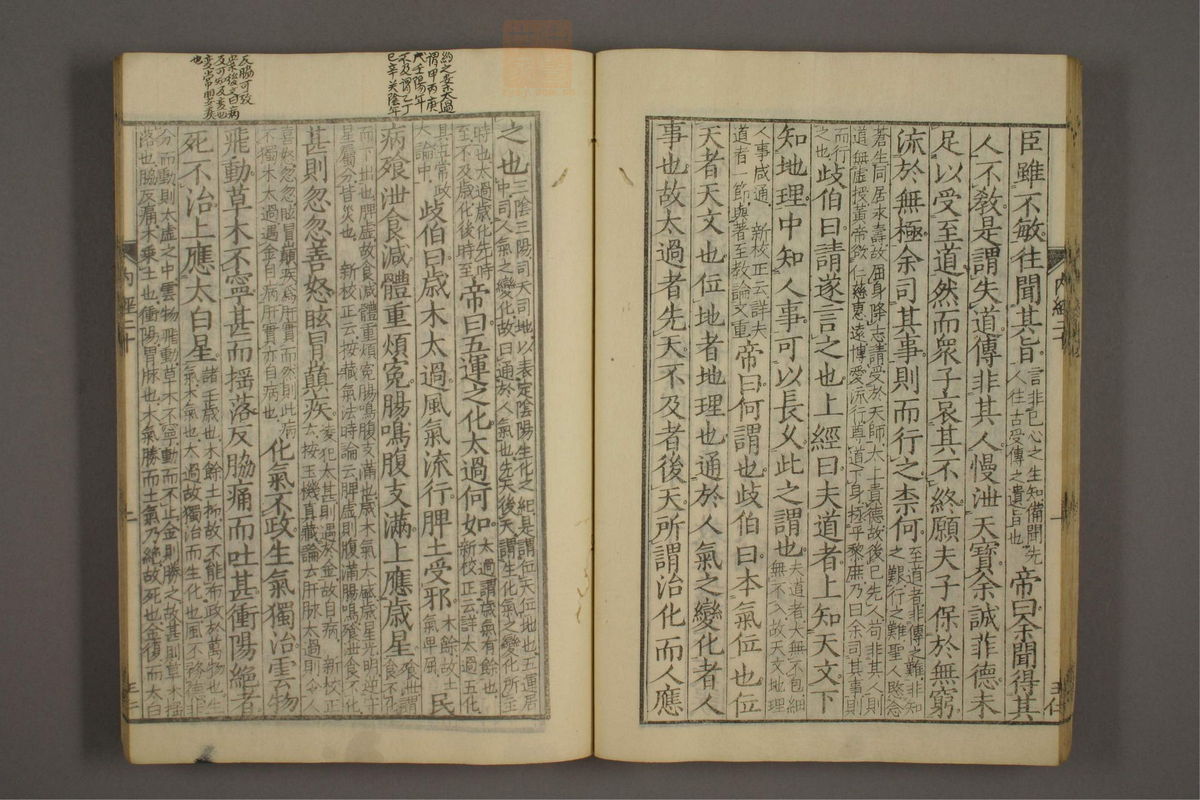 臣雖不敏往聞其旨言非己心之生知備聞先
人往古受傳之遺旨也帝曰余聞得其
人不敎是謂失道傳非其人慢泄天寶余誠菲德未
足以受至道然而衆子哀其不終願夫子保於無窮
流於無極余司其事則而行之柰何至道者非傳之難非知
之艱行之難聖人愍念
蒼生同居永壽故屈身降志請受於天師太上貴德故後己先人苟非其人則
道無虛授黃帝欲仁慈惠遠博愛流行尊道下身極乎黎庶乃曰余司其事則
而行
之也歧伯曰請遂言之也上經曰夫道者上知天文下
知地理中知人事可以長久此之謂也夫道者大無不包細
無不入故天文地理
人事咸通 新校正云詳夫
道者一節與著至教論文重帝曰何謂也歧伯曰本氣位也位
天者天文也位地者地理也通於人氣之變化者人
事也故太過者先天不及者後天所謂治化而人應
内經二十
約之委太過
謂甲丙庚
戊壬陽年
不及謂乙丁
己辛癸陰年
之也三陰三陽司天司地以表定陰陽生化之紀是謂位天位地也五運居
中司人氣之變化故曰通於人氣也先天後天謂生化氣之變化所主
時也太過歲化先時
至不及歲化後時至帝曰五運之化太過何如太過謂歲氣有餘也
新校正云詳太過五化
具五常政
大論中歧伯曰歲木太過風氣流行脾土受邪木餘故土
氣卑屈民
病飱泄食減體重煩寃腸鳴腹支滿上應歲星飱泄謂
食不化
而下出也脾虛故食減體重煩寃腸鳴腹支滿也歲木氣太盛歲星光明逆守
星屬分皆災也 新校正云按藏氣法時論云脾虛則腹滿腸鳴飱泄食不化
甚則忽忽善怒眩冒巔疾凌犯太甚則遇於金故自病 新校正
云按玉機真藏論云肝脉太過則令人
喜怒忽忽眩冒巔疾爲肝實而然則此病
不獨木太過遇金自病肝實亦自病也化氣不政生氣獨治雲物
飛動草木不寧甚而揺落反脇痛而吐甚衝陽絶者
死不治上應太白星諸壬歲也木餘土抑故不能布政於萬物也生
氣木氣也太過故獨治而生化也風不務德非
分而動則太虛之中雲物飛動草木不寧動而不止金則勝之故甚則草木揺
落也脇反痛木乘土也衝陽胃脉也木氣勝而土氣乃絶故死也金復而太白
内經二十
二